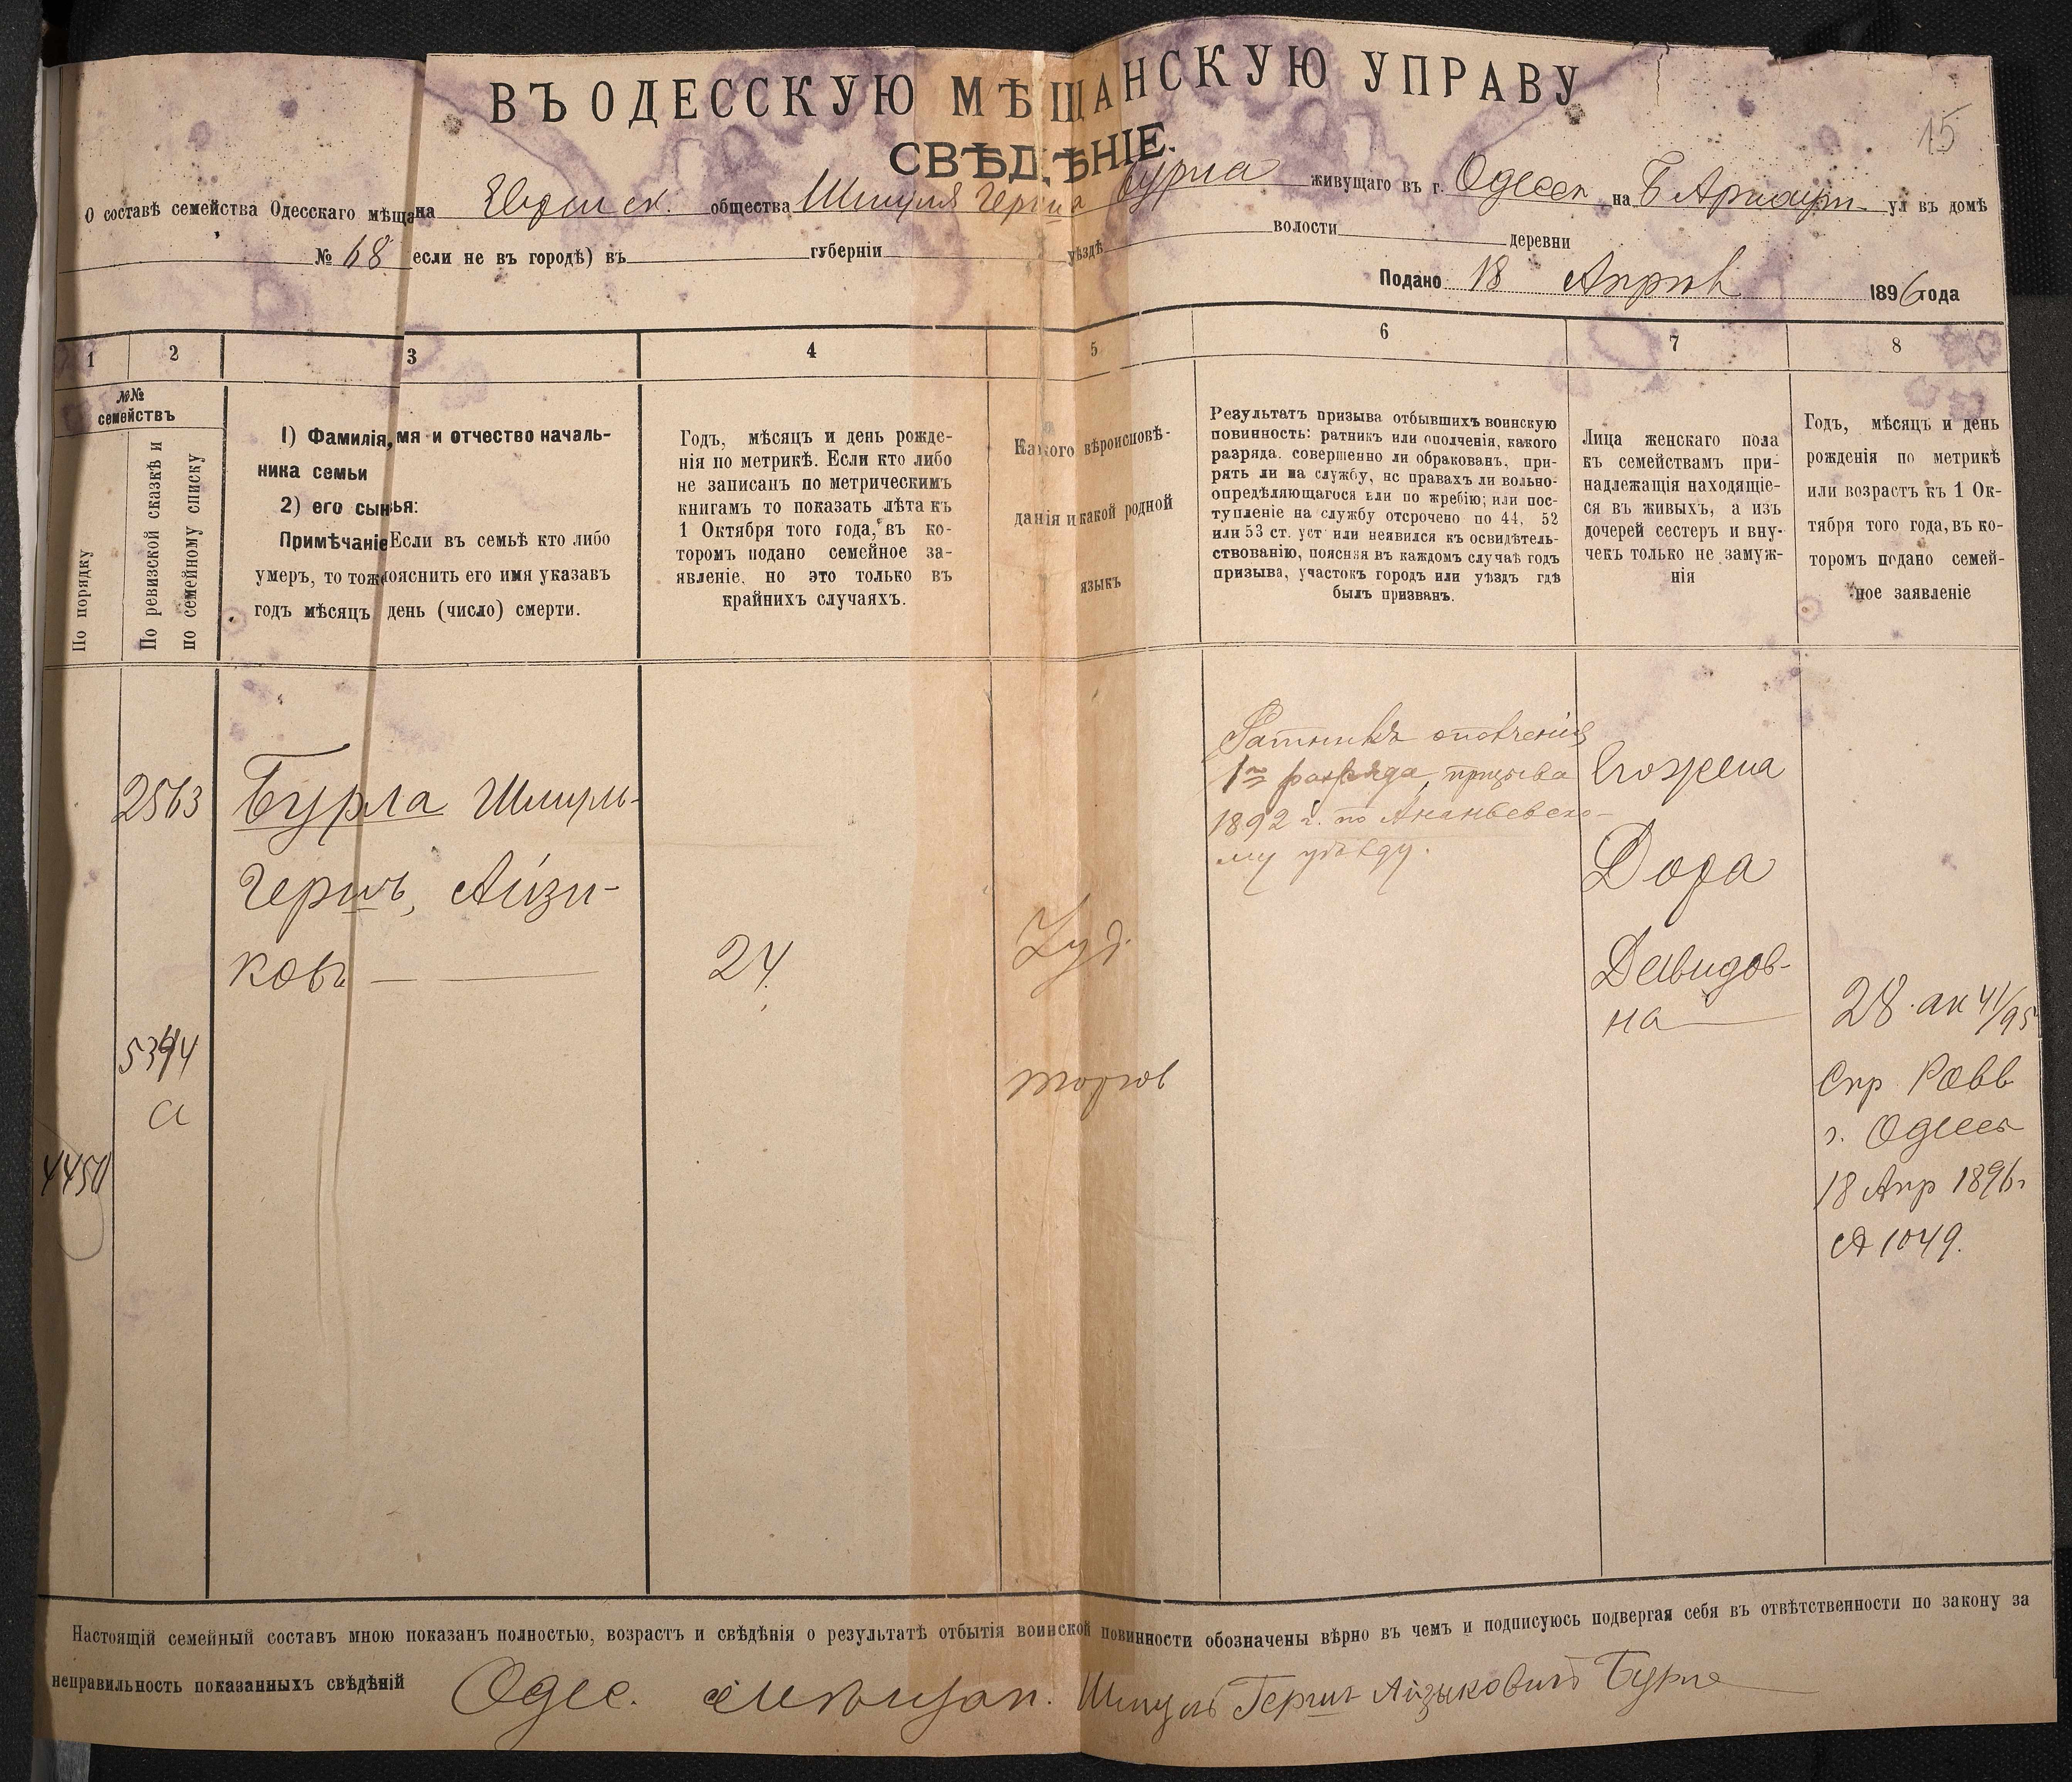 ВЪ ОДЕССКУЮ МѢЩАНСКУЮ УПРАВУ
15
СВѢДѢНІЕ.
О составѣ семейства Одесскаго мѣщанина Еврейск. общества Шмуля Герша Бурла живущаго въ г. Одессѣ на Б Арнаут. ул въ домѣ
№ 68 если не въ городѣ) въ губерніи уѣздѣ волости деревни
Подано 18 Апрѣля 1896 года
1 2 3 4 5 6 7 8
№№ семействъ
По порядку
По ревизской сказкѣ и
по семейному списку
1) Фамилія, мя и отчество началь-
ника семьи
2) его сынья:
Примѣчаніе Если въ семьѣ кто либо
умеръ, то тоже пояснить его имя указавъ
годъ мѣсяцъ день (число) смерти.
Годъ, мѣсяцъ и день рожде-
нія по метрикѣ. Если кто либо
не записанъ по метрическимъ
книгамъ то показать лѣта къ
1 Октября того года, въ ко-
торомъ подано семейное за-
явленіе, но это только въ
крайнихъ случаяхъ.
Какого вѣроисповѣ-
данія и какой родной
языкъ
Результатъ призыва отбывшихъ воинскую
повинность: ратникъ или ополченія, какого
разряда. совершенно ли обракованъ, при-
рять ли на службу, нс правахъ ли вольно-
опредѣляющагося или по жребію; или пос-
тупленіе на службу отсрочено по 44, 52
или 53 ст. уст или неявился къ освидѣтель-
ствованію, поясняя въ каждомъ случаѣ годъ
призыва, участокъ городъ или уѣздъ гдѣ
былъ призванъ.
Лица женскаго пола
къ семействамъ при-
надлежащія находящіе-
ся въ живыхъ, а изъ
дочерей сестеръ и вну-
чекъ только не замуж-
нія
Годъ, мѣсяцъ и день
рожденія по метрикѣ
или возрастъ къ 1 Ок-
тября того года, въ ко-
торомъ подано семей-
ное заявленіе
2563
5394
а
4450
Бурла Шмуль-
Гершъ, Айзи-
ковъ
24
Іуд.
Ратникъ ополченія
1го разряда, призыва
1892 г. по Ананьевско-
му уѣзду.
его жена
Дора
Давидов-
на
28 ак 41/95
Спр Равв
г. Одессы
18 Апр 1896 г
№ 1049.
Настоящій семейный составъ мною показанъ полностью, возрастъ и свѣдѣнія о результатѣ отбытія воинской повинности обозначены вѣрно въ чемъ и подписуюсь подвергая себя въ отвѣтственности по закону за
неправильность показанныхъ свѣдѣній Одес. мѣщан. Шмуль Гершъ Айзыковичъ Бурла